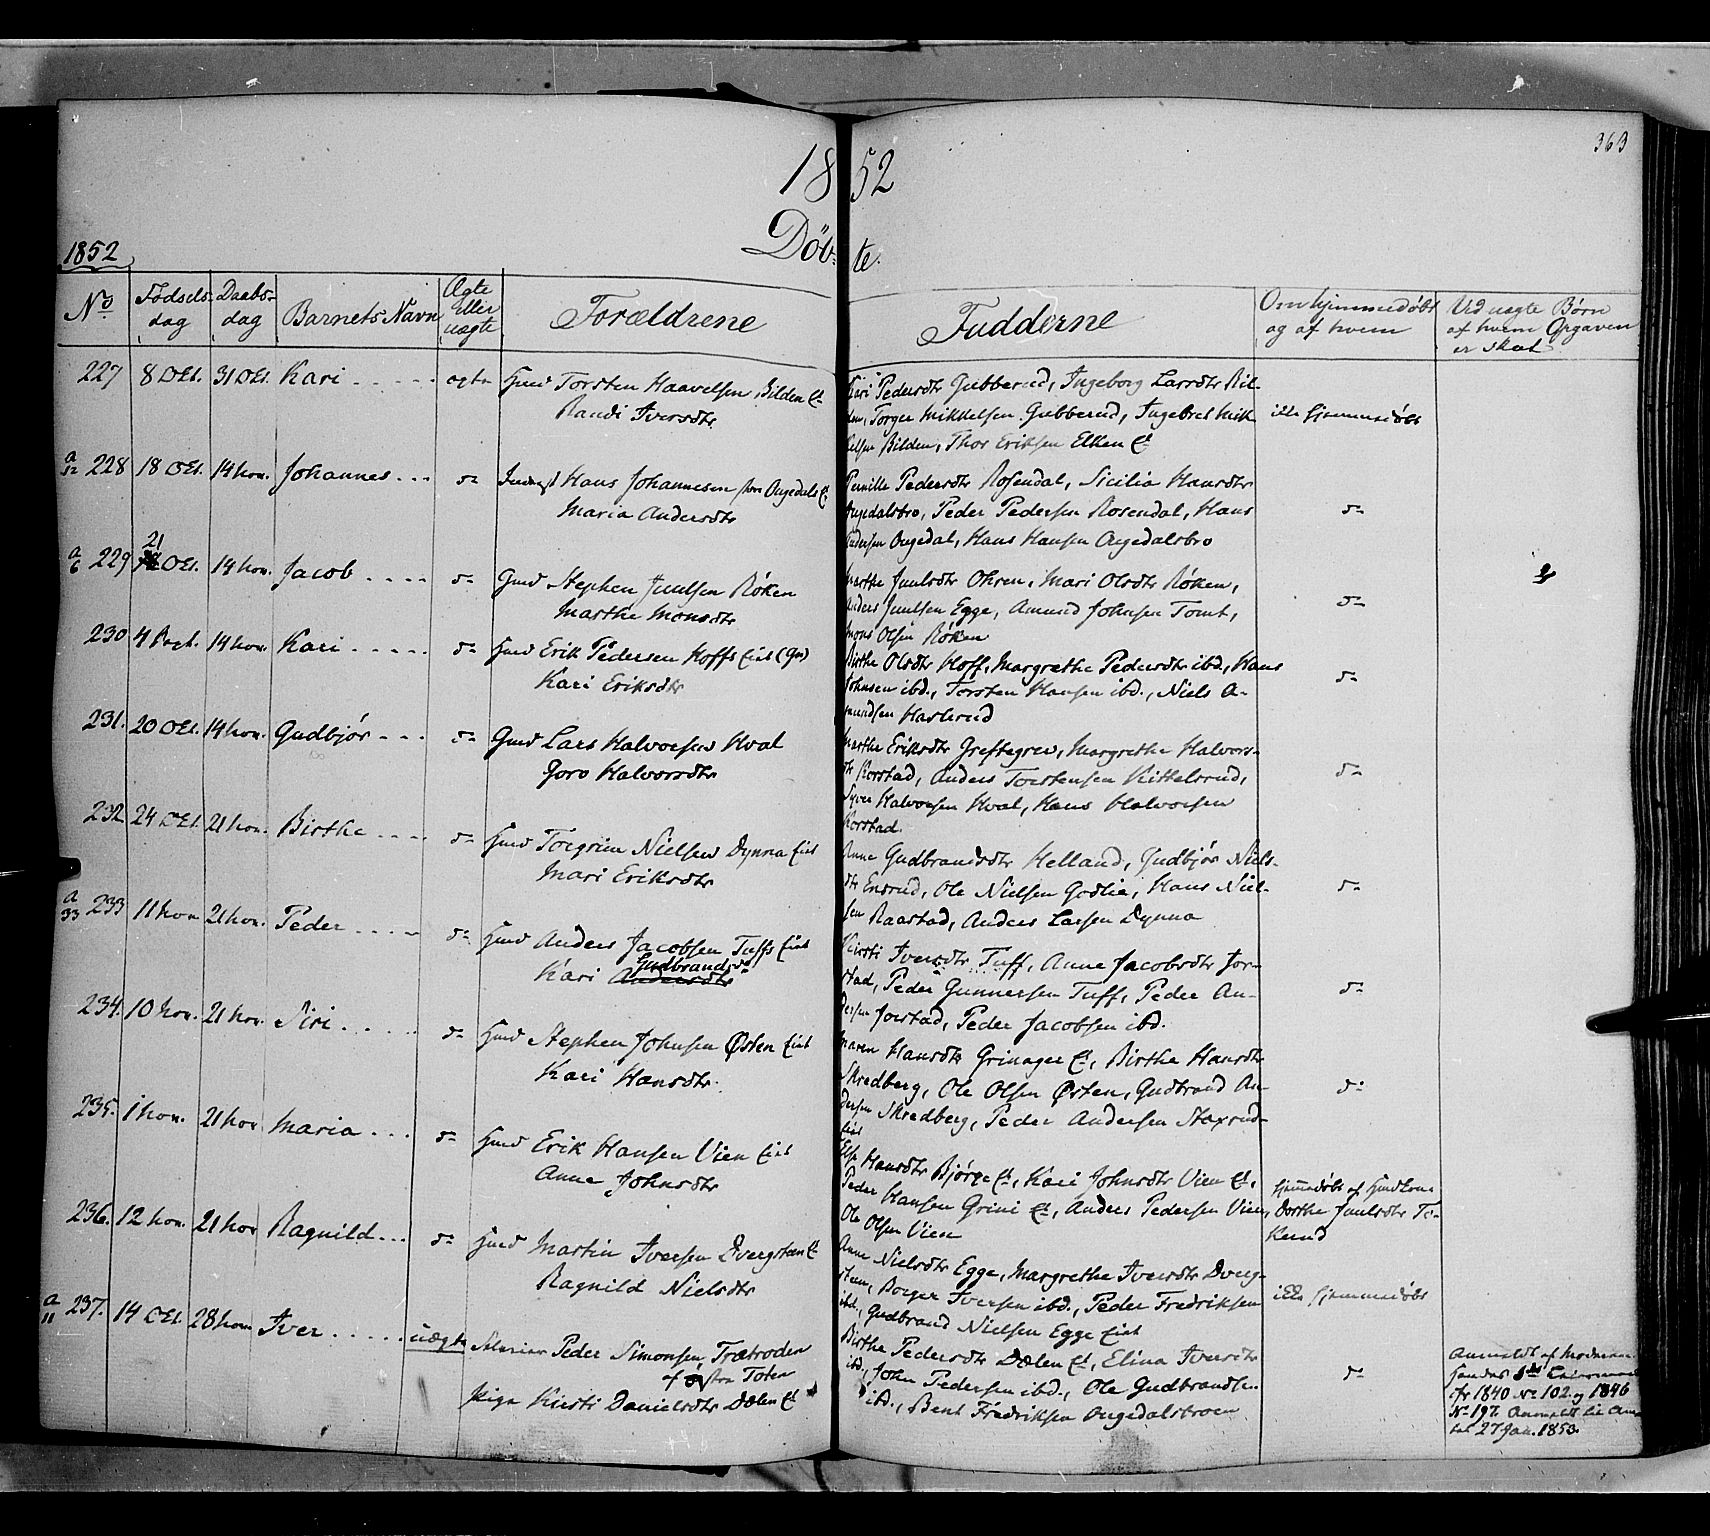 363
18 52
Døb- te.
1852
No Fødsels- dag Daabs- dag Barnets Navn Ægte Eller uægte Forældrene Fadderne Om hjemmedøbt og af hvem Ved uægte Børn af hvem Opgaven er skeet
227 8 Oct. 31 Oct. Kari ægte Gmd Torsten Haavelsen Bilden Et
Randi Iversdtr
Kari Pedersdtr Gubberud, Ingeborg Larsdtr Bil-
den, Torger Mikkelsen Gubberud, Ingebret Mik-
kelsen Bilden, Thor Eriksen Elken Et
ikke hjemmedøbt
a 12 228 18 Oct. 14 Nov. Johannes do Hans Johannesen fra Augedals Et
Maria Andersdtr
Pernille Pedersdtr Rosendal, Sicilia Hansdtr
Augedalsbro, Peder Pedersen Rosendal, Hans
Andersen Augedal, Hans Hansen Augedalsbro
do
a 6 229 21 Oct. 14 Nov. Jacob do Gmd Stephen Juulsen Røken
Marthe Monsdtr
Marthe Juulsdtr Ohren, Mari Olsdtr Røken,
Anders Juulsen Egge, Amund Johnsen Tomt,
Mons Olsen Røken
do
230 4 Sept. 14 Nov. Kari do Hmd Erik Pedersen Hoffs Eiet (Gr)
Kari Eriksdtr
Birthe Olsdtr Hoff, Margrethe Pedersdtr ibd., Hans
Johnsen ibd., Torsten Hansen ibd., Niels A-
mundsen Haslerud
do
231. 20 Oct. 14 Nov. Gudbjør do Gmd Lars Halvorsen Hval
Goro Halvorsdtr
Marthe Eriksdtr Greftegrev, Margrethe Halvors-
dtr Korstad, Anders Torstensen Kittelsrud,
Syver Halvorsen Hval, Hans Halvorsen
Korstad.
do
232 24 Oct. 21 Nov. Birthe do Hmd Torgrim Nielsen Dynna Eiet
Mari Eriksdtr
Anne Gudbrandsdtr Helland, Gudbjør Niels-
dtr Enerud, Ole Nielsen Godlie, Hans Niel-
sen Raastad, Anders Larsen Dynna
do
a 33 233 11 Nov 21 Nov. Peder do Hmd Anders Jacobsen Tuffs Eiet
Gudbrandsdr
Kari Andersdtr
Kirsti Iversdtr Tuff, Anne Jacobsdtr Jor-
stad, Peder Gunnersen Tuff, Peder An-
dersen Jorstad, Peder Jacobsen ibd.
do
234. 10 Nov. 21 Nov. Siri do Hmd Stephen Johnsen Østen Eiet
Kari Hansdtr.
Maren Hansdtr Grinager Et, Birthe Hansdtr
Skredberg, Ole Olsen Østen, Gudbrand An-
dersen Skredberg, Peder Andersen Staxrud-
eiet
do
235. 1 Nov. 21 Nov Maria do Hmd Erik Hansen Vien Eiet
Anne Johnsdtr
Else Hansdtr Bjørge Et, Kari Johnsdtr Vien Et,
Peder Hansen Grini Et, Anders Pedersen Vien,
Ole Olsen Vien
hjemmedøbt af Hmdkone
Dorthe Juulsdtr To-
kerud
236. 12 Nov. 21 Nov Ragnild do Hmd Martin Iversen Dvergsten Et
Ragnild Nielsdtr
Anne Nielsdtr Egge, Margrethe Iversdtr Dverg-
sten, Borger Iversen ibd., Peder Fredriksen
ibd., Gudbrand Nielsen Egge Eiet
ikke hjemmedøbt
a 11 237. 14 Oct. 28 Nov Iver uægte Peder Simonsen Trætroden
fra Toten
Pige Kirsti Danielsdtr Dælen Et
Birthe Pedersdtr Dælen Et, Elina Iversdtr
ibd., John Pedersen ibd., Ole Gudbrandsen
ibd., Bent Fredriksen Augedalsbroen
do
Anmeldt af Moderen
cfr 1840 No 102 og 1846
No 197. Anmeldt til Am-
tet 27 Jan. 1853.